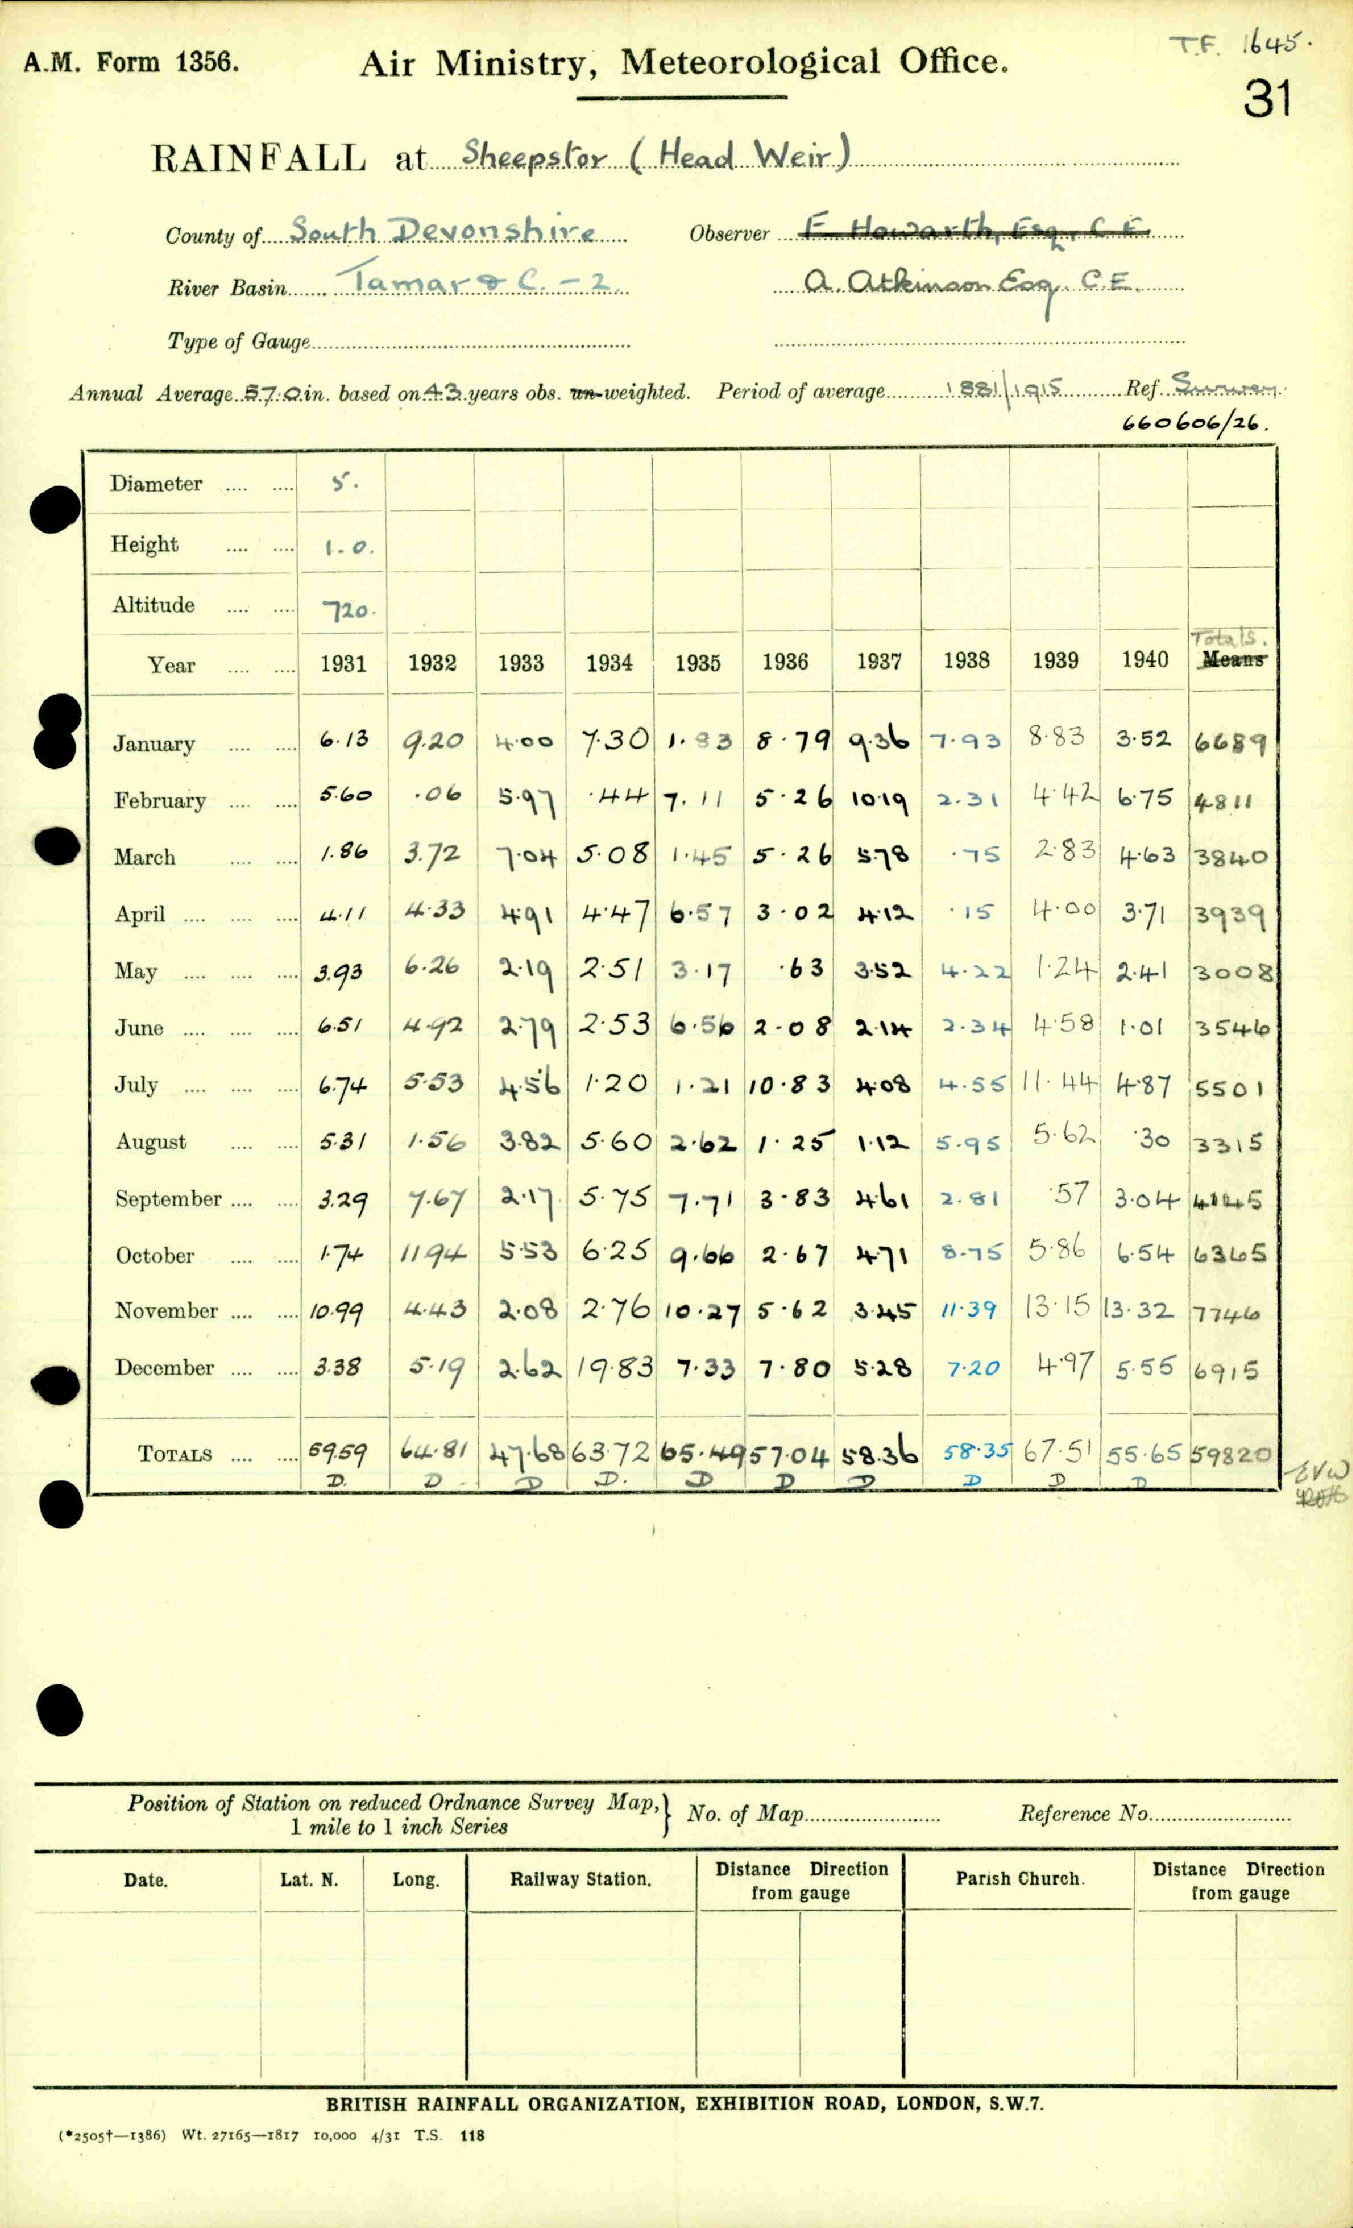 T.F. 1645.
A.M. Form 1356. Air Ministry, Meteorological Office.
31
RAINFALL at Sheepstor (Head Weir)
County of South Devonshire Observer E Howarth, Esq., C.E.
River Basin Tamar & C. - 2. A. Atkinson Esq. C.E.
Type of Gauge
Annual Average 57.0 in. based on 43 years obs. un-weighted. Period of average 1881/1915 Ref. Survey.
660606/26.
Diameter .... .... 5.
Height .... .... 1-0.
Altitude .... .... 720.
Totals.
Year .... .... 1931 1932 1933 1934 1935 1936 1937 1938 1939 1940 Means
January .... .... 6.13 9.20 4.00 7.30 1.83 8.79 9.36 7.93 8.83 3.52 6689
February .... .... 5.60 .06 5.97 .44 7.11 5.26 10.19 2.31 4.42 6.75 4811
March .... .... 1.86 3.72 7.04 5.08 1.45 5.26 5.78 .75 2.83 4.63 3840
April .... .... .... 4.11 4.33 4.91 4.47 6.57 3.02 4.12 .15 4.00 3.71 3939
May .... .... .... 3.93 6.26 2.19 2.51 3.17 .63 3.52 4.22 1.24 2.41 3008
June .... .... .... 6.51 4.92 2.79 2.53 6.56 2.08 2.14 2.34 4.58 1.01 3546
July .... .... .... 6.74 5.53 4.56 1.20 1.21 10.83 4.08 4.55 11.44 4.87 5501
August .... .... 5.31 1.56 3.82 5.60 2.62 1.25 1.12 5.95 5.62 .30 3315
September .... .... 3.29 7.67 2.17 5.75 7.71 3.83 4.61 2.81 .57 3.04 4145
October .... .... 1.74 11.94 5.53 6.25 9.66 2.67 4.71 8.75 5.86 6.54 6365
November .... .... 10.99 4.43 2.08 2.76 10.27 5.62 3.45 11.39 13.15 13.32 7746
December .... .... 3.38 5.19 2.62 19.83 7.33 7.80 5.28 7.20 4.97 5.55 6915
TOTALS .... .... 59.59 64.81 47.68 63.72 65.49 57.04 58.36 58.35 67.51 55.65 59820
D. D D D. D D D D D D EVW
Position of Station on reduced Ordnance Survey Map, } No. of Map Reference No.
1 mile to 1 inch Series
Date. Lat. N. Long. Railway Station. Distance Direction from gauge Parish Church. Distance Direction from gauge
BRITISH RAINFALL ORGANIZATION, EXHIBITION ROAD, LONDON, S.W.7.
(*2505†—1386) Wt. 27165—1817 10,000 4/31 T.S. 118